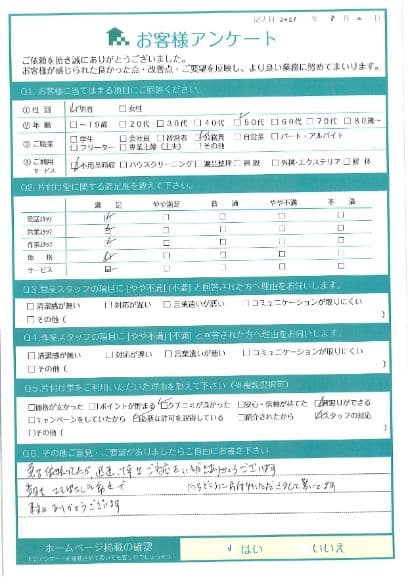 記入日 2021 年 8月 日
お客様アンケート
ご依頼を頂き誠にありがとうございました。
お客様が感じられた良かった点・改善点・ご要望を反映し、より良い業務に努めてまいります。
Q1.お客様に当てはまる項目にご回答ください。
①性別 □男性 □女性
②年齢 □~19歳 □20代 □30代 □40代 □50代 □60代 □70代 □80歳~
③ご職業 □学生 □会社員 □経営者 □公務員 □自営業 □パート・アルバイト
□フリーター □専業主婦(主夫) □その他
④ご利用サービス □不用品回収 □ハウスクリーニング □遺品整理 □買取 □外構・エクステリア □解体
Q2.片付け堂に関する満足度を教えて下さい。
満足 やや満足 普通 やや不満 不満
電話スタッフ □ □ □ □ □
営業スタッフ □ □ □ □ □
作業スタッフ □ □ □ □ □
価格 □ □ □ □ □
サービス □ □ □ □ □
Q3.営業スタッフの項目に[やや不満][不満]と回答された方へ理由をお伺いします。
□清潔感が無い □対応が遅い □言葉遣いが悪い □コミュニケーションが取りにくい
□その他(
Q4.作業スタッフの項目に[やや不満][不満]と回答された方へ理由をお伺いします。
□清潔感が無い □対応が遅い □言葉遣いが悪い □コミュニケーションが取りにくい
□その他(
Q5.片付け堂をご利用いただいた理由を教えて下さい(※複数選択可)
□価格が安かった □Tポイントが貯まる □クチコミが良かった □安心・信頼が持てた □買取りができる
□キャンペーンをしていたから □必要な許可を取得している □紹介されたから □スタッフの対応
□その他(
Q6.その他ご意見・ご要望がありましたらご自由にお書き下さい
ありがとうございます
ホームページ掲載の確認
□はい □いいえ